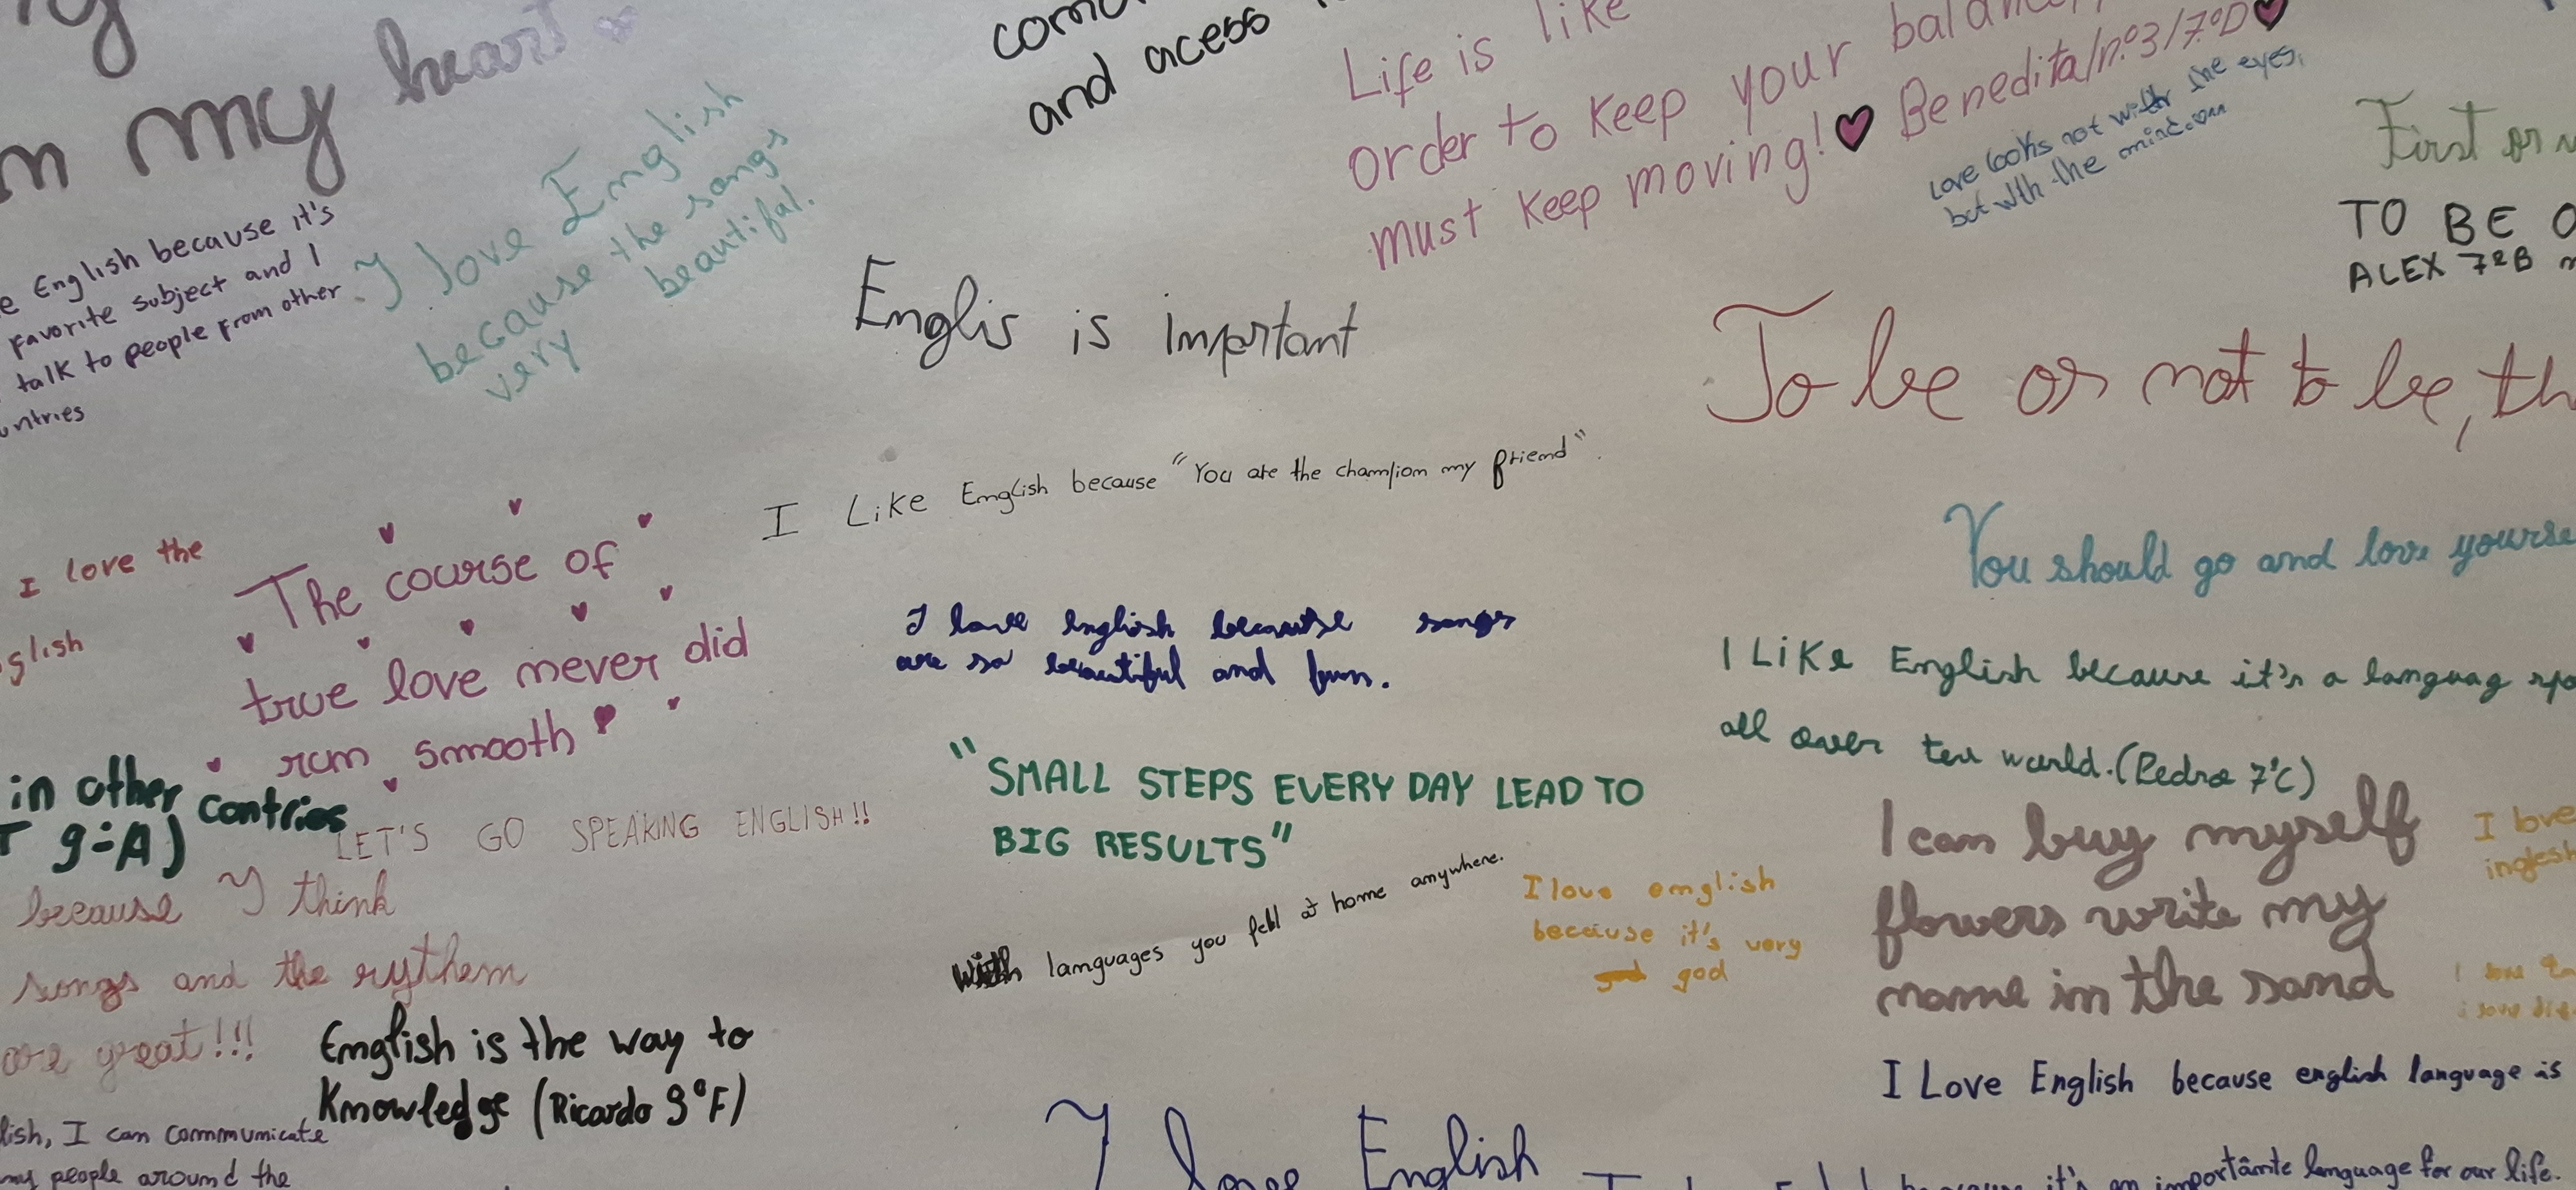 m my heart
comu
and acess
Life is like
order to keep your balan
must keep moving! Benedita/n.º3/7ºD
Love looks not with the eyes,
but with the mind.
First or n
TO BE O
ALEX 7ºB
e English because it's
favorite subject and I
talk to people from other
untries
I love English
because the songs
very beautiful.
Englis is important
To be or not to be, th
I Like English because "You are the champion my friend".
I love the
glish
The course of
true love never did
run smooth
You should go and love yourse
I love english because songs
are so beautiful and fun.
I Like English because it's a languag spo
all over teu world. (Pedro 7ºC)
in other contries
T 9ºA)
LET'S GO SPEAKING ENGLISH!!
"SMALL STEPS EVERY DAY LEAD TO
BIG RESULTS"
With languages you feel at home anywhere.
I love english
because it's very
god
I can buy myself
flowers write my
name in the sand
I love
inglesh
because I think
songs and the rythem
are great!!!
English is the way to
Knowledge (Ricardo 9ºF)
I love En
i love
I Love English because english language is
lish, I can communicate
my people around the
I love English
because it's an importânte language for our life.